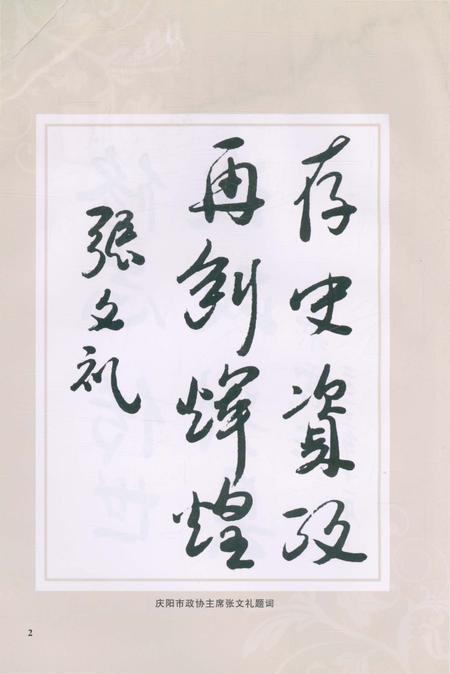 存史資政
再創輝煌
張文礼
庆阳市政协主席张文礼题词
2